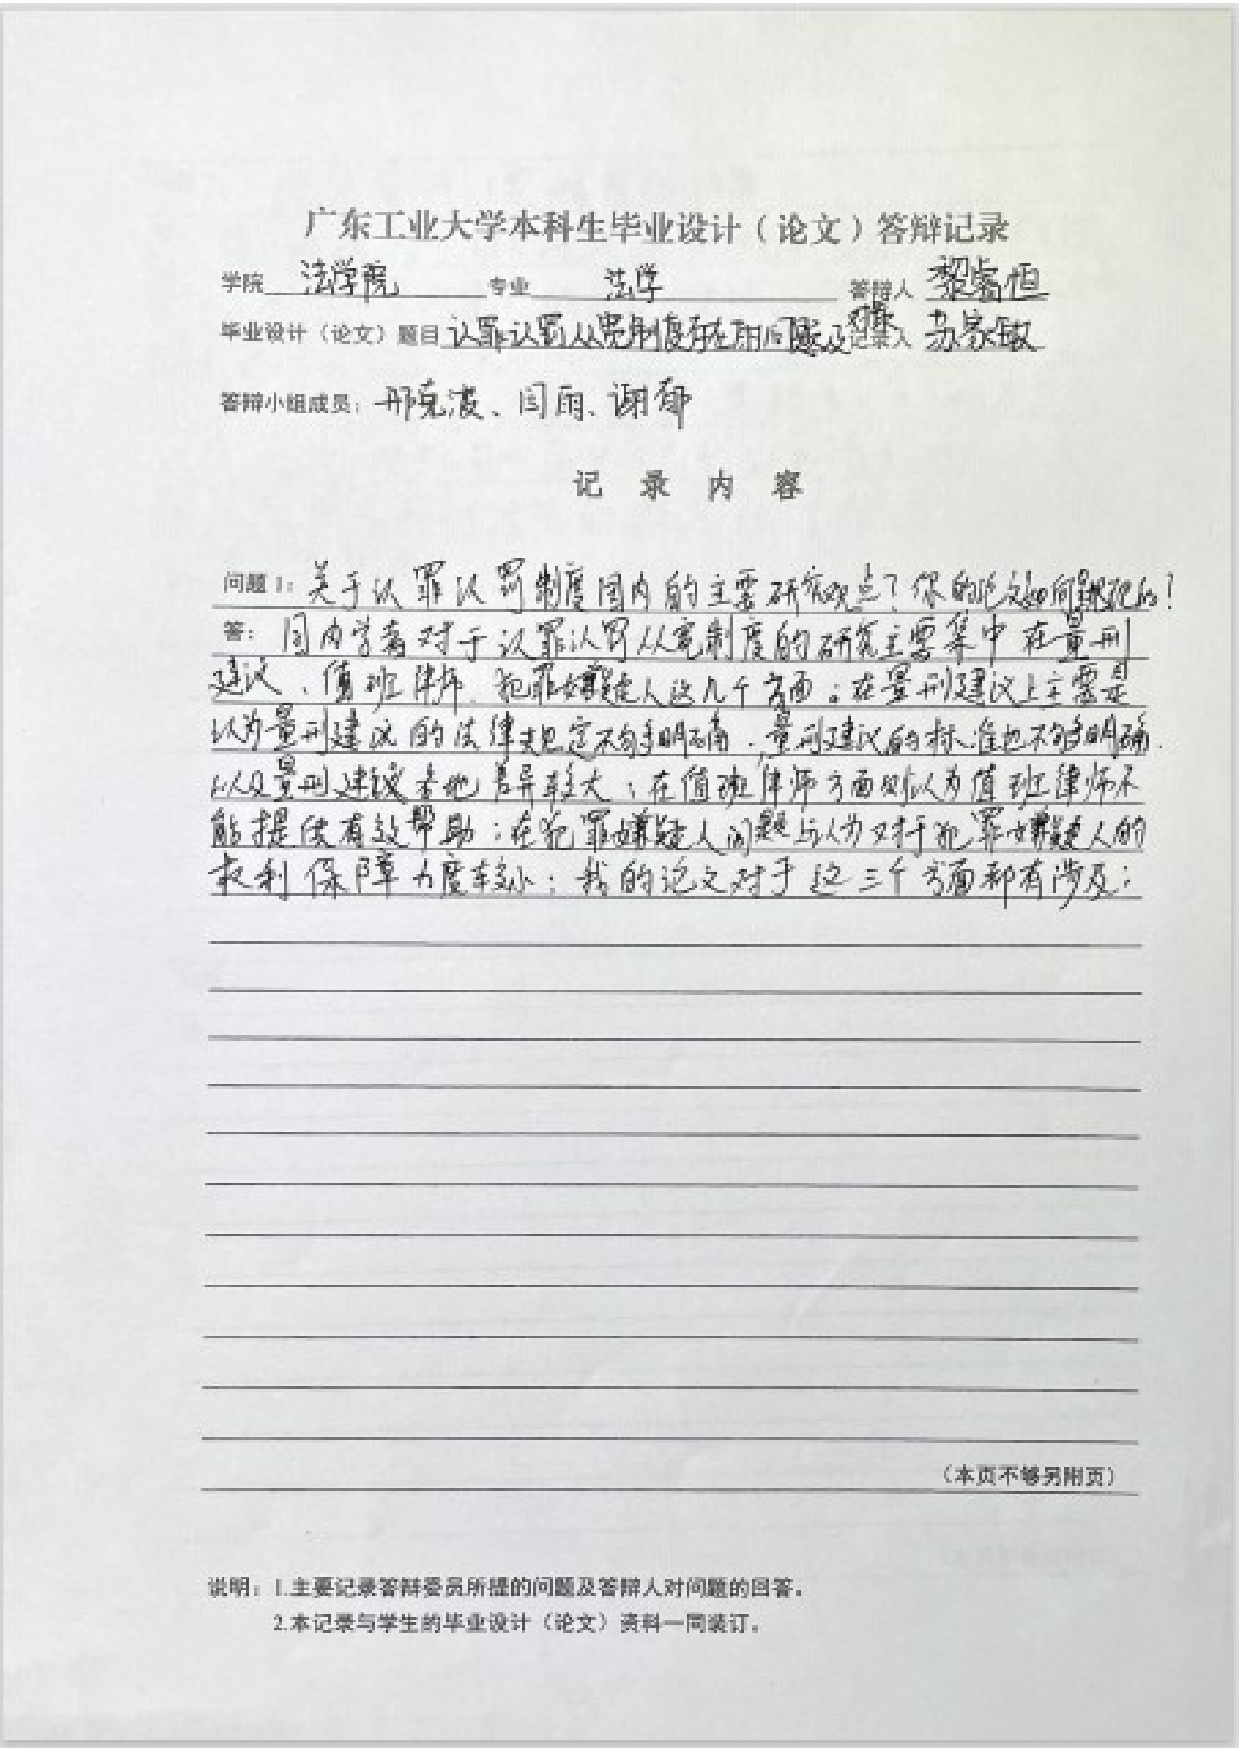 广东工业大学本科生毕业设计（论文）答辩记录
学院 法学院 专业 法学 答辩人 黎睿恒
毕业设计（论文）题目 认罪认罚从宽制度存在的问题及对策 记录人 苏家敏
答辩小组成员：邢克波、闫雨、谢郁
记 录 内 容
问题1：关于认罪认罚制度国内的主要研究观点？你的论文如何的？
答：国内学者对于认罪认罚从宽制度的研究主要集中在量刑
建议、值班律师、犯罪嫌疑人这几个方面；在量刑建议上主要是
认为量刑建议的法律规定不够明确，量刑建议的标准也不够明确
以及量刑建议各地差异较大；在值班律师方面则认为值班律师不
能提供有效帮助；在犯罪嫌疑人问题上认为对于犯罪嫌疑人的
权利保障力度较小；我的论文对于这三个方面都有涉及；
（本页不够另附页）
说明：1.主要记录答辩委员所提的问题及答辩人对问题的回答。
2.本记录与学生的毕业设计（论文）资料一同装订。